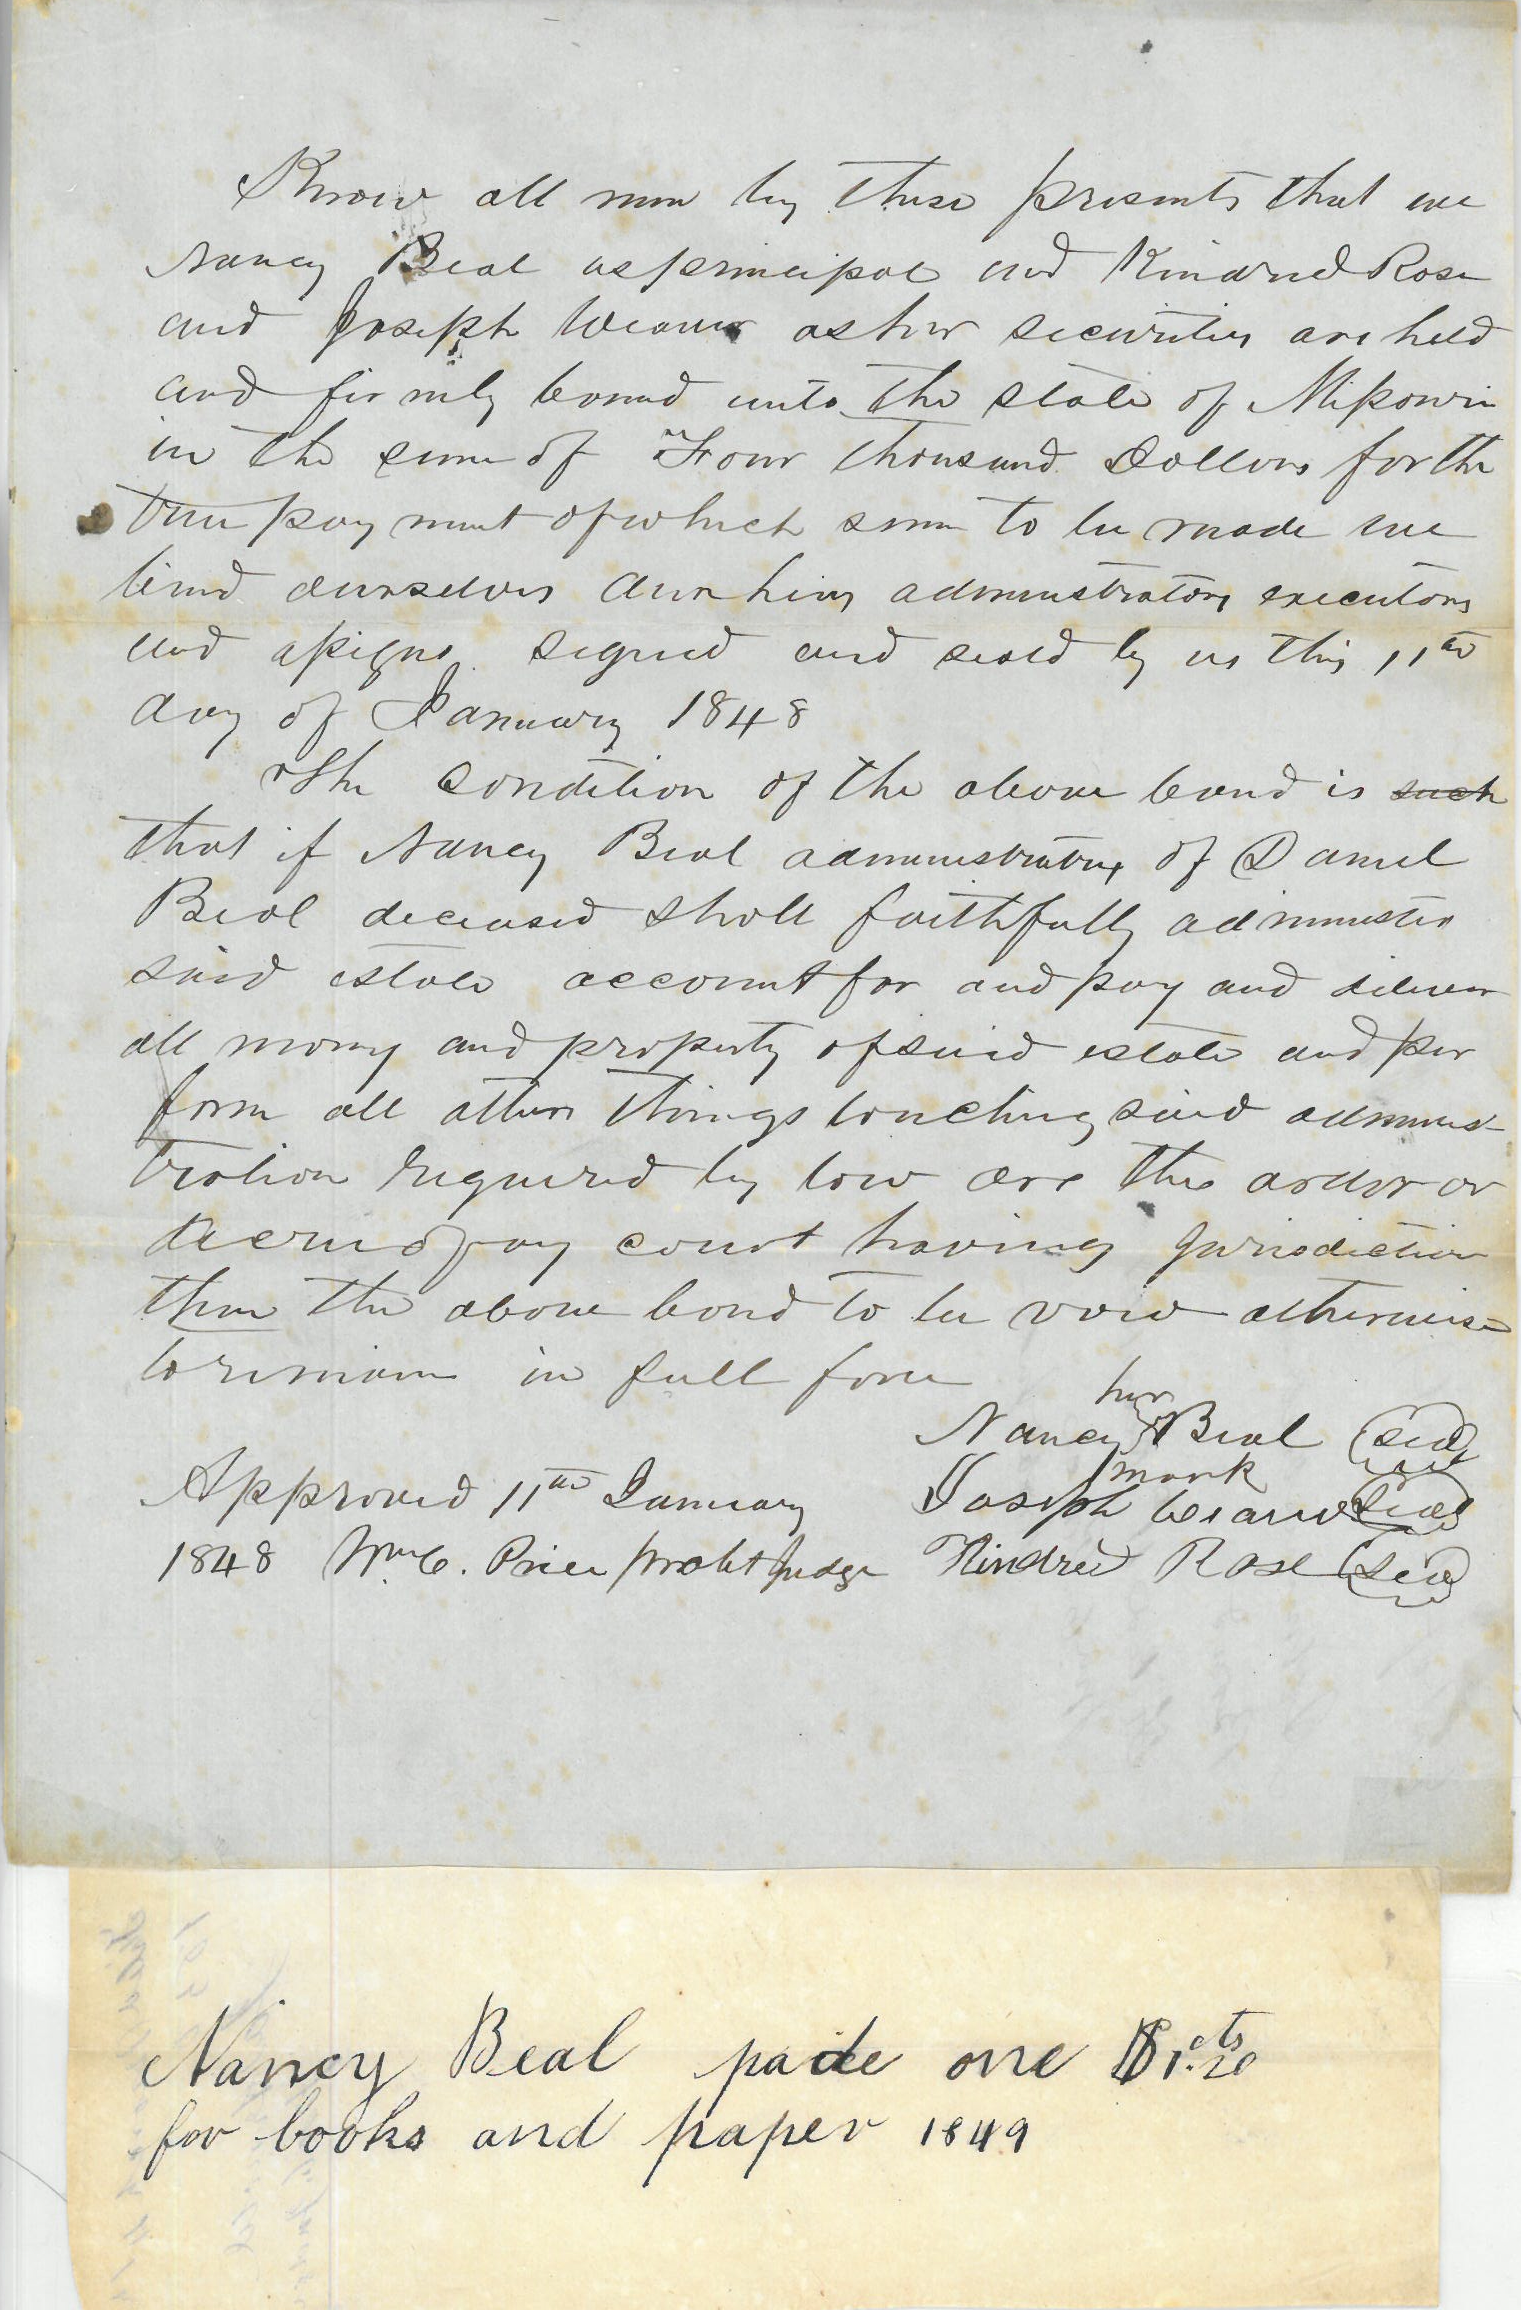 Know all men by these presents that we
Nancy Beal as principal and Kindred Rose
and Joseph Weaver as her securities are held
and firmly bound unto the state of Missouri
in the sum of Four thousand Dollars for the
true payment of which sum to be made we
bind ourselves our heirs administrators executors
and assigns signed and seald by us this 11th
day of January 1848
The condition of the above bond is such
that if Nancy Beal administratrix of Daniel
Beal deceased shall faithfully administer
said estate account for and pay and deliver
all money and property of said estate and per
form all others things touching said adminis-
tration required by law are the order or
decree of any court having jurisdiction
then the above bond to be void otherwise
to remain in full force
her
Nancy X Beal (seal)
mark
Approved 11th January Joseph Weaver (seal)
1848 Wm C. Price probt judge Kindred Rose (seal)
Nancy Beal paide one $1.20 cts
for books and paper 1849